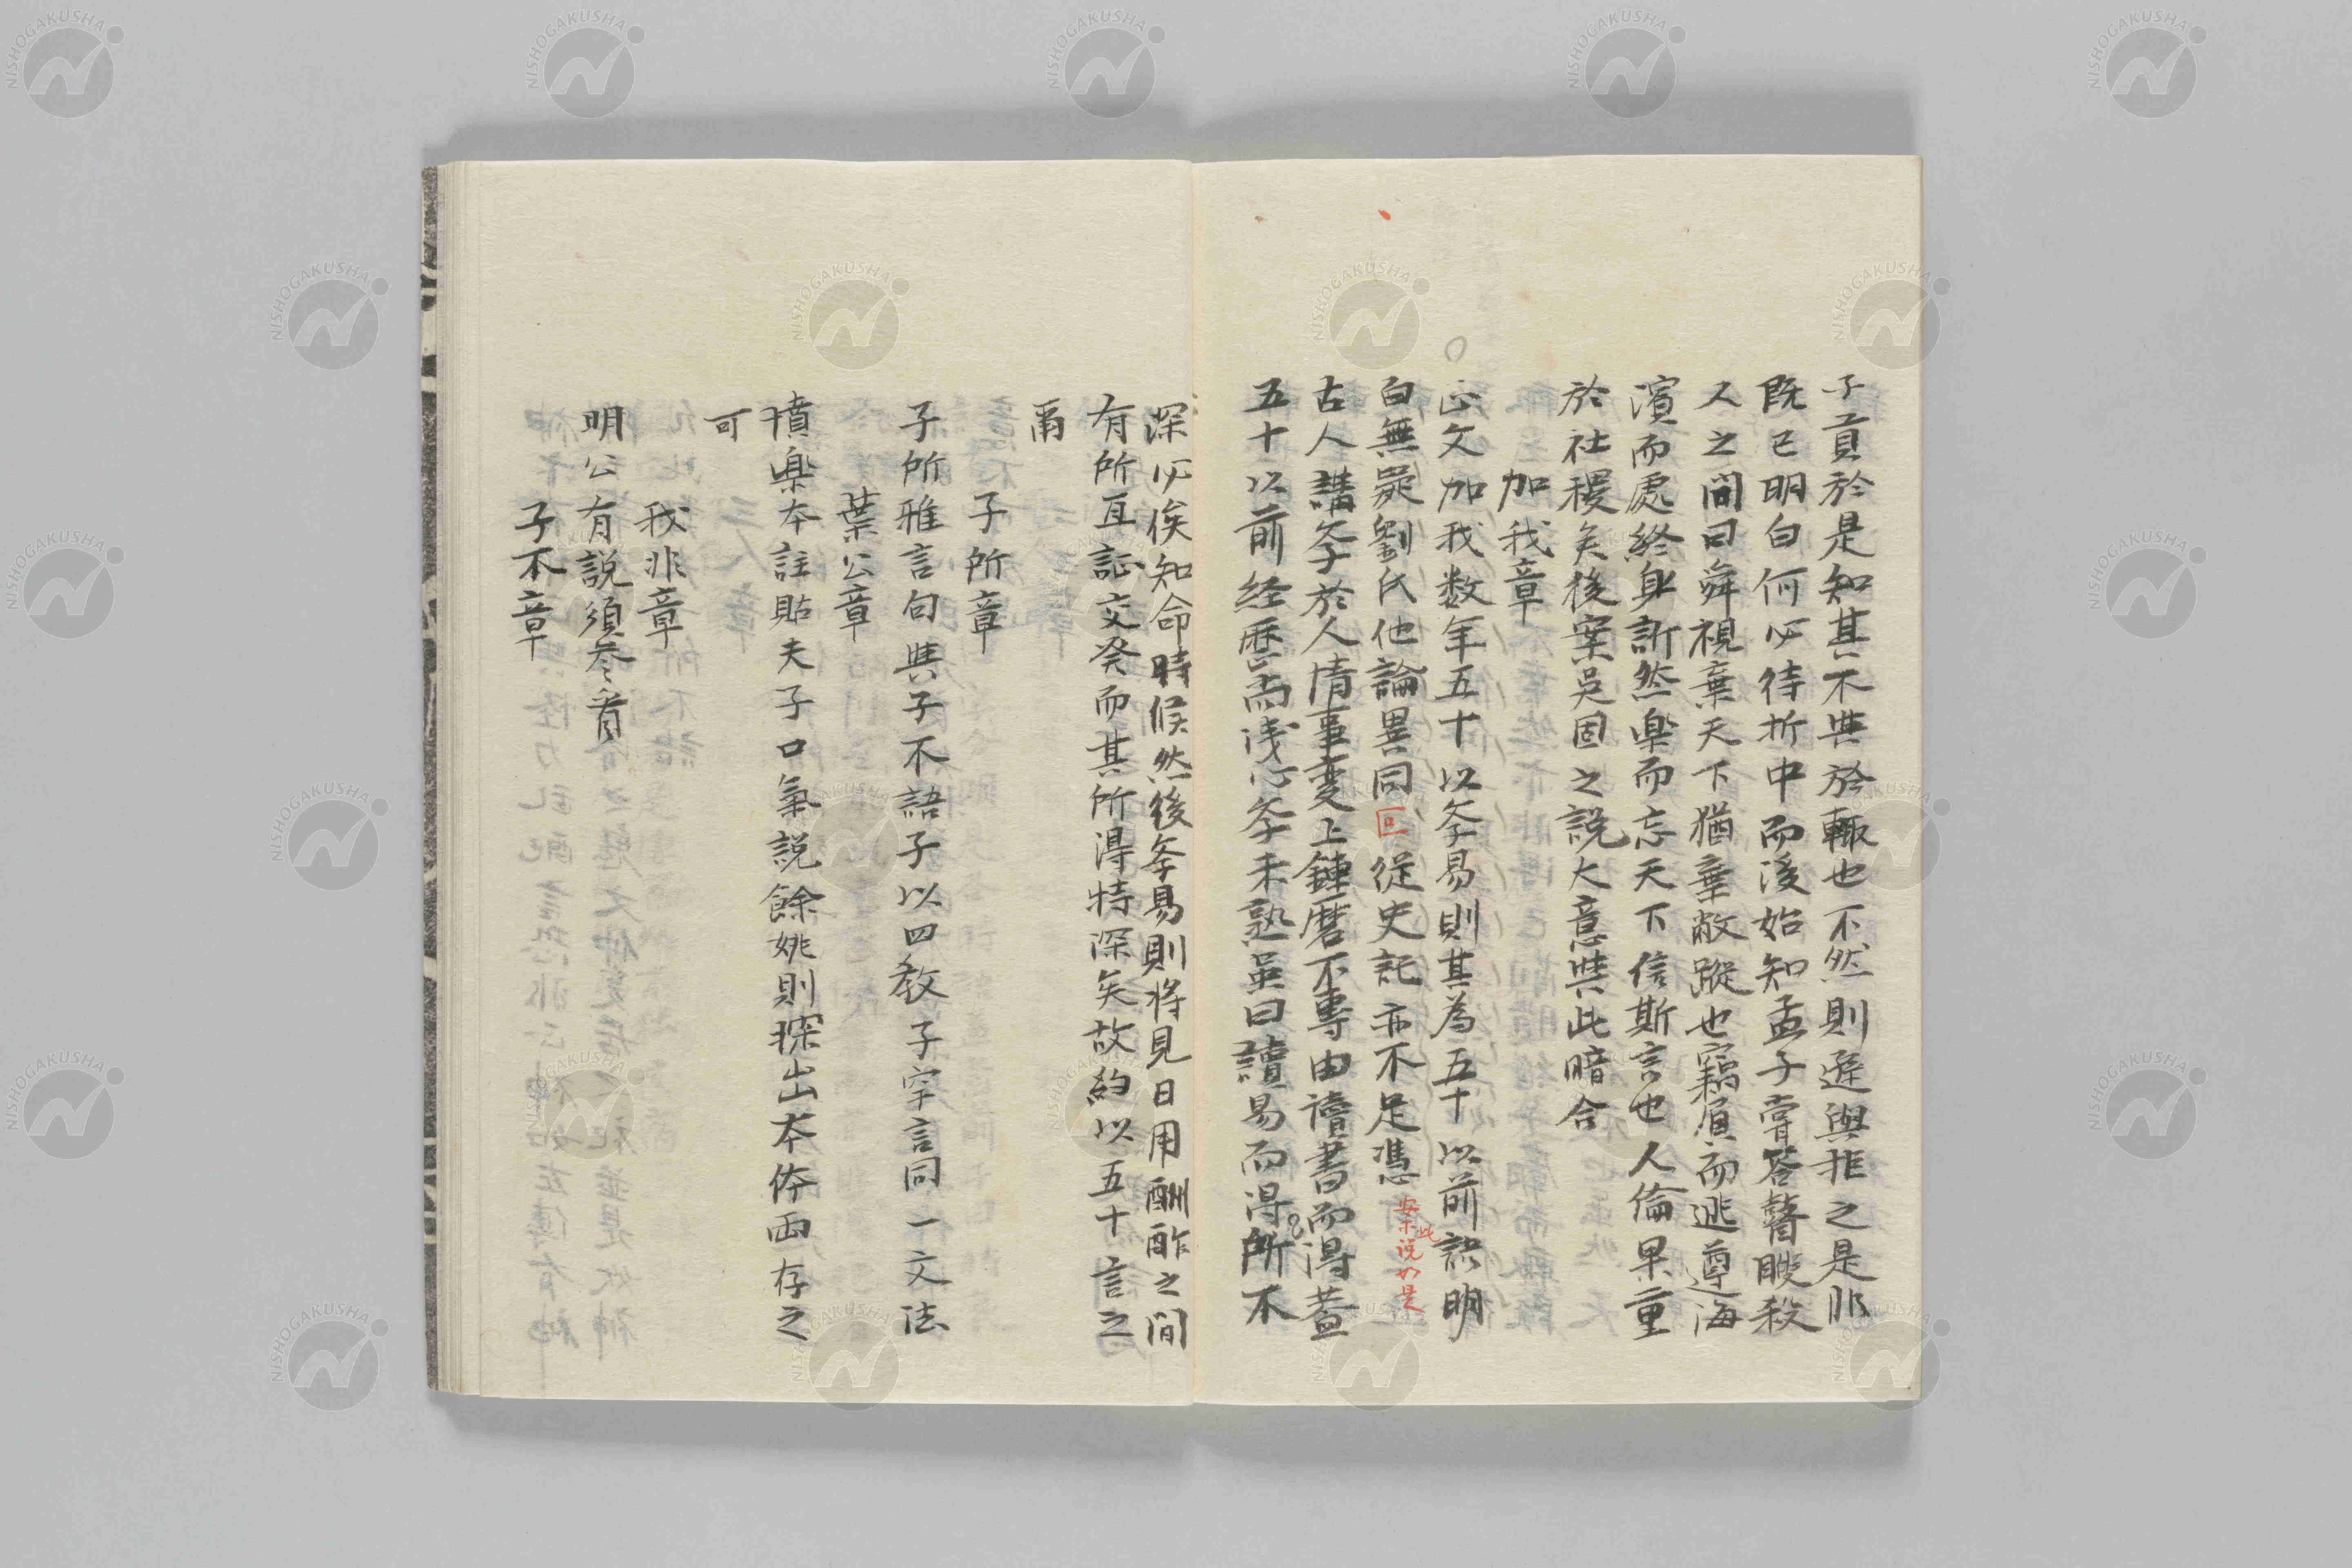 子貢於是知其不與於輙也不然則遜與拒之是非
既已明白何必待折中而後始知孟子嘗答瞽瞍殺
人之間曰舜視棄天下猶棄敝蹝也竊負而逃遵海
濱而處終身訢然楽而忘天下信斯言也人倫果重
於社稷矣後案吳因之説大意與此暗合
加我章
正文加我数年五十以斈易則其為五十以前訣明
白無毙劉氏他論異同囙從史記亦不足憑
案此说如是
古人講斈於人情事変上錬磨不専由讀書而得蓋
五十以前経歴尚浅心斈未熟虽曰讀易而得所不
深必俟知命時候然後斈易則将見日用酬酢之間
有所互証交発而其所得特深矣故約以五十言之
爾
子所章
子所雅言句與子不語子以四教子罕言同一文法
葉公章
憤楽本註貼夫子口氣説餘姚則探出本体両存之
可
我非章
明公有説須参看
子不章
NISHOGAKUSHA